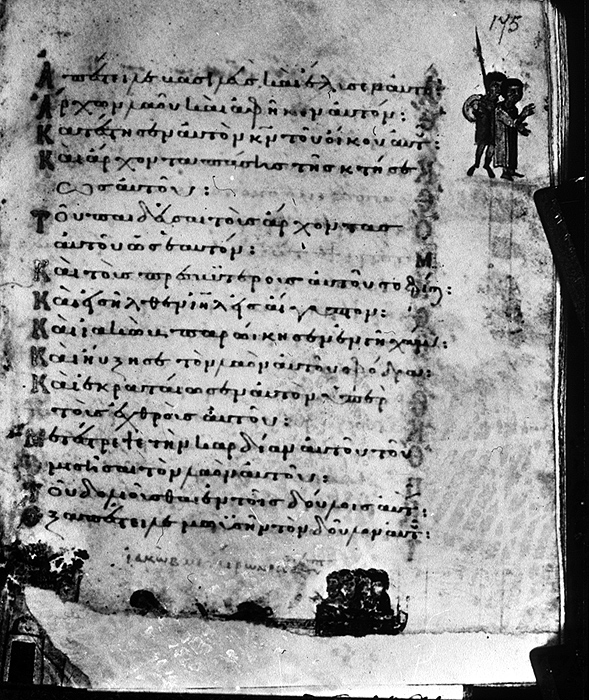 175
Ἀπέστειλε βασιλεὺς καὶ ἔλυσεν αὐτόν:
Ἄρχων λαοῦ καὶ ἀφῆκεν αὐτόν:
Κατέστησεν αὐτὸν κν̄ τοῦ οἴκου αὐτ:
Καὶ ἄρχοντα πάσης τῆς κτήσε
ως αὐτοῦ:
Τοῦ παιδεῦσαι τοὺς ἄρχοντας
αὐτοῦ ὡς ἑαυτόν:
Καὶ τοὺς πρεσβυτέρους αὐτοῦ σοφίσαι:
Καὶ εἰσῆλθεν ιη̄λ εἰς αἴγυπτον:
Καὶ ἰακὼβ παρώικησεν ἐν γῆι χάμ:
Καὶ ηὔξησε τὸν λαὸν αὐτοῦ σφόδρα:
Καὶ ἐκραταίωσεν αὐτὸν ὑπὲρ
τοὺς ἐχθροὺς αὐτοῦ:
Μετέστρεψε τὴν καρδίαν αὐτοῦ τοῦ
μισῆσαι τὸν λαὸν αὐτοῦ:
Τοῦ δολιοῦσθαι ἐν τοῖς δούλοις αὐτ:
Ἐξαπέστειλε μωϋσῆν τὸν δοῦλον αὐτ: